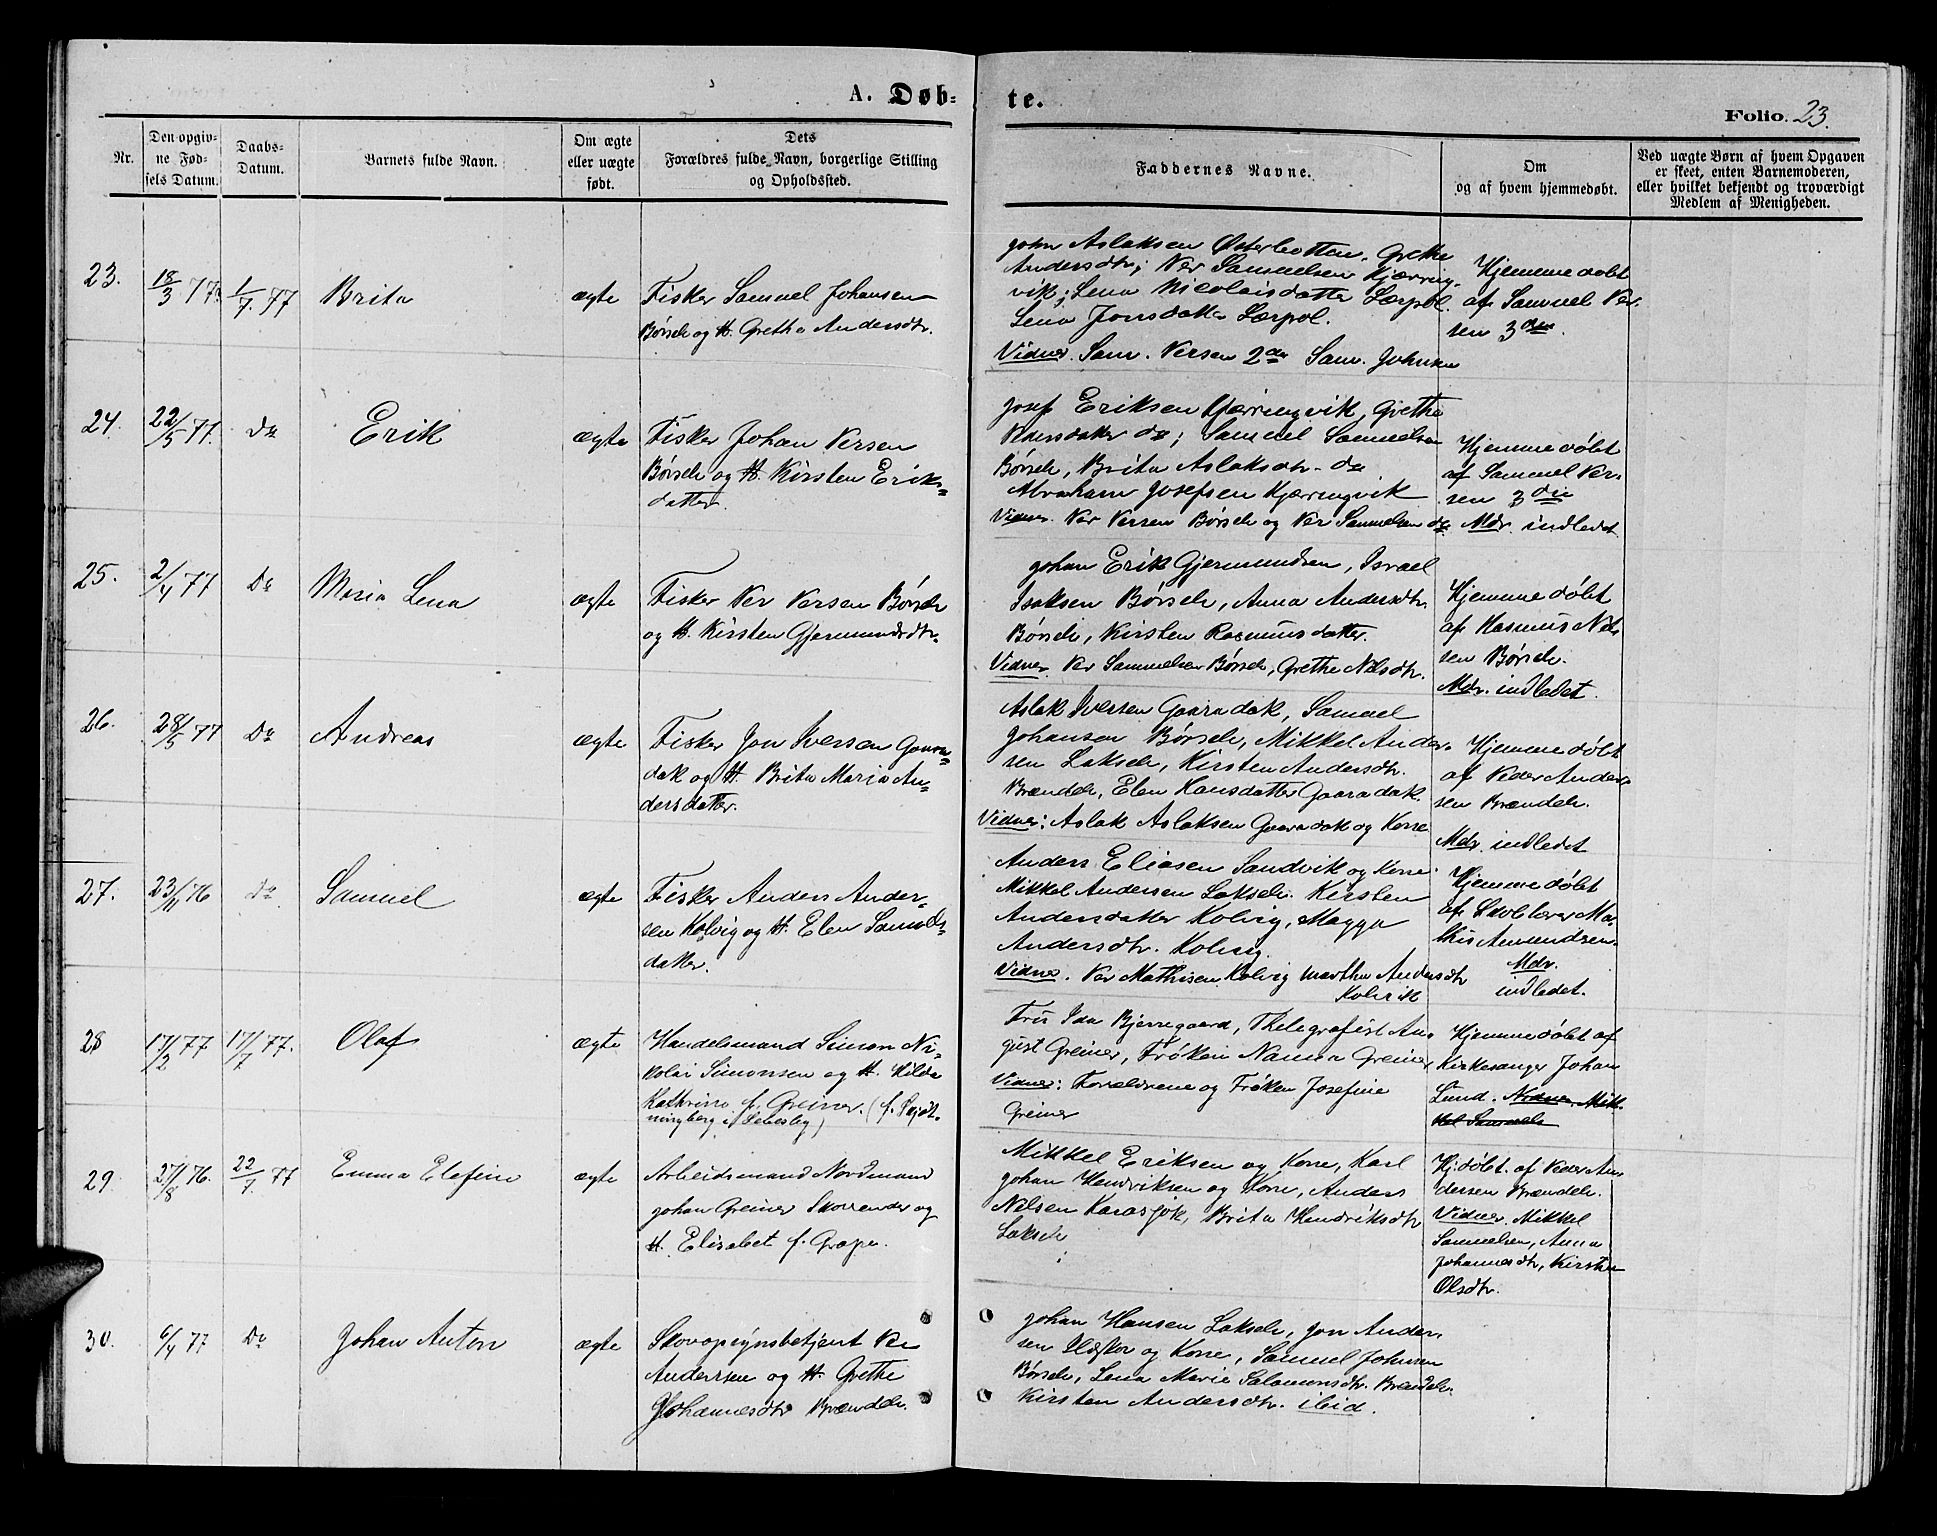 A. Døb-
te.
Folio. 23.
Nr.
Den opgiv-
ne Fød-
sels Datum.
Daabs-
Datum.
Barnets fulde Navn.
Om ægte
eller uægte
født.
Dets
Forældres fulde Navn, borgerlige Stilling
og Opholdssted.
Faddernes Navne.
Om
og af hvem hjemmedøbt.
Ved uægte Børn af hvem Opgaven
er skeet, enten Barnemoderen,
eller hvilket bekjendt og troværdigt
Medlem af Menigheden.
23.
18/3 77
1/7. 77
Brita
ægte
Fisker Samuel Johansen
Børsele og H. Grethe Andersdtr.
John Aslaksen Østerbotten, Grethe
Andersdtr; Per Samuelsen Kjærring-
vik; Lena Nicolaisdatter Lærpol.
Lena Jonsdatter Lærpol.
Vidner. Sam. Persen 2den Sam. Johnsen
Hjemmedøbt
af Samuel Per-
sen 3die.
24.
22/5 77.
Do
Erik
ægte
Fisker Johan Persen
Børsele og H. Kirsten Eriks-
datter.
Josef Eriksen Kjærringvik, Grethe
Pedersdatter do; Samuel Samuelsen
Børsele, Brita Aslaksdtr. do
Abraham Josefsen Kjærringvik
Vidner. Per Persen Børsele og Per Samuelsen do.
Hjemmedøbt
af Samuel Per-
sen 3die
Mdr. indledet
25.
2/4 77
Do
Maria Lena
ægte
Fisker Per Persen Børsele
og H. Kirsten Gjermundsdtr.
Johan Erik Gjermundsen, Israel
Isaksen Børsele, Anna Andersdtr.
Børsele, Kirsten Rasmusdatter.
Vidner. Per Samuelsen Børsele, Grethe Nilsdtr.
Hjemmedøbt
af Rasmus Nil-
sen Børsele.
Mdr. indledet.
26.
28/5 77
Do
Andreas
ægte
Fisker Jon Iversen Gaara-
dak og H. Brita Maria An-
dersdatter.
Aslak Iversen Gaaradak, Samuel
Johansen Børsele, Mikkel Ander-
sen Laksele, Kirsten Andersdtr.
Brændele, Elen Hansdatter Gaaradak.
Vidner: Aslak Aslaksen Gaaradak og Kone
Hjemmedøbt
af Peder Ander-
sen Brændele.
Mdr. indledet
27.
23/11 76
Do
Samuel
ægte
Fisker Anders Ander-
sen Kolvig og H. Elen Samuels-
datter.
Anders Eliasen Sandvik og Kone.
Mikkel Andersen Laksele. Kirsten
Andersdatter Kolvig, Magga
Andersdtr. Kolvig.
Vidner. Per Mathisen Kolvig Marthe Andersdtr
Kolvik
Hjemmedøbt
af Skolelærer Ma-
this Amundsen.
Mdr.
indledet.
28
17/2 77
17/7 77.
Olaf
ægte
Handelsmand Simon Ni-
kolai Simonsen og H. Hilda
Kathrine f. Greiner.
Fru Ida Bjerregaard, Thelegrafist Au-
gust Greiner, Frøken Nanna Greiner
Vidner: Forældrene og Frøken Josefine
Greiner
Hjemmedøbt af
Kirkesanger Johan
Lund. Vidner. Mik-
kel Samuels
29.
27/8 76.
22/7. 77
Emma Elefine
ægte
Arbeidsmand Nordmand
Johan Greiner Skovender og
H. Elisabet f. Grape.
Mikkel Eriksen og Kone, Karl
Johan Hendriksen og Kone, Anders
Nilsen Karasjok, Brita Hendriksdtr
Laksele
Hj: døbt. af Peder An-
dersen Brændele.
Vidner. Mikkel
Samuelsen, Anna
Johannesdtr, Kirsten
Olsdtr.
30.
6/4 77
Do
Johan Anton
ægte
Skovopsynsbetjent Per
Anderssen og H. Grethe
Johannesdtr Brændele.
Johan Hansen Laksele, Jon Ander-
sen og Kone, Samuel Johnsen
Børsele, Lena Marie Salamonsdtr. Brændele.
Kirsten Andersdtr. ibid.